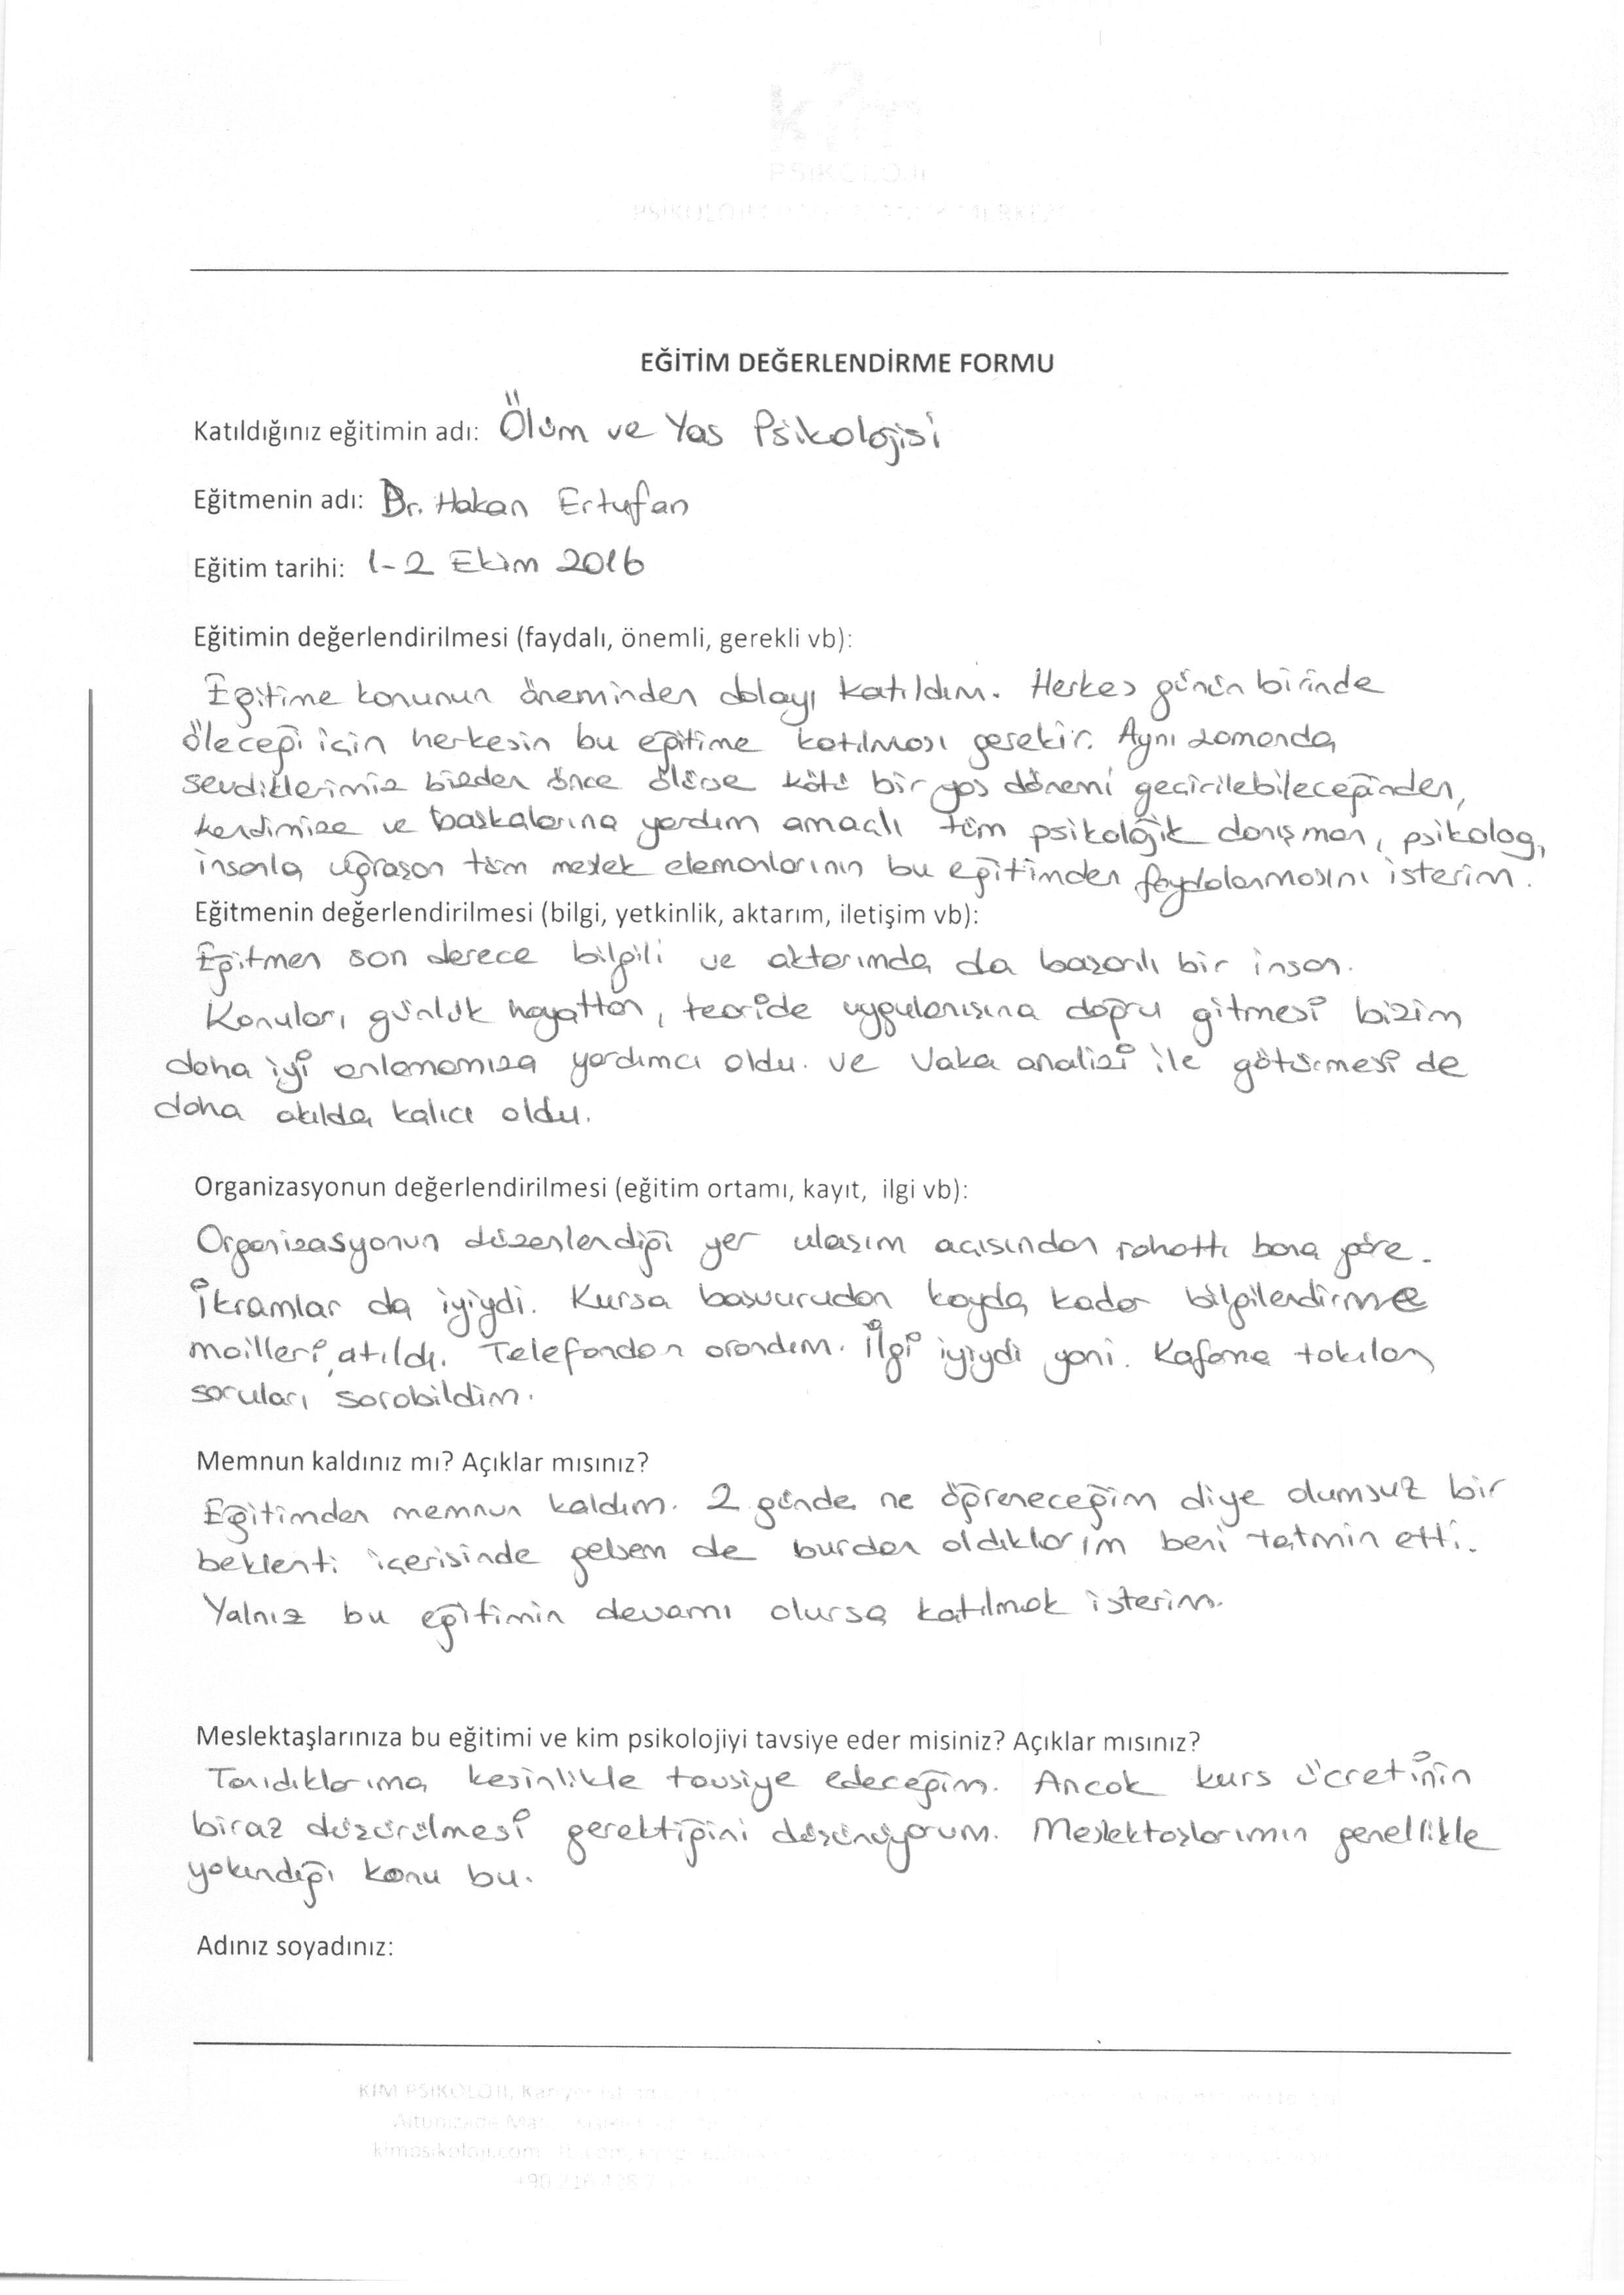 kim
PSİKOLOJİ
EĞİTİM DEĞERLENDİRME FORMU
Katıldığınız eğitimin adı: Ölüm ve Yas Psikolojisi
Eğitmenin adı: Dr. Hakan Ertufan
Eğitim tarihi: 1-2 Ekim 2016
Eğitimin değerlendirilmesi (faydalı, önemli, gerekli vb):
Eğitime konunun öneminden dolayı katıldım. Herkes günün birinde
öleceği için herkesin bu eğitime katılması gerekir. Aynı zamanda
sevdiklerimiz bizden önce ölürse kötü bir yas dönemi geçirilebileceğinden,
kendimize ve başkalarına yardım amaçlı tüm psikolojik danışman, psikolog,
insanla uğraşan tüm meslek elemanlarının bu eğitimden faydalanmasını isterim.
Eğitmenin değerlendirilmesi (bilgi, yetkinlik, aktarım, iletişim vb):
Eğitmen son derece bilgili ve aktarımda da başarılı bir insan.
Konuları günlük hayattan, teoride uygulanışına doğru gitmesi bizim
daha iyi anlamamıza yardımcı oldu. ve Vaka analizi ile götürmesi de
daha akılda kalıcı oldu.
Organizasyonun değerlendirilmesi (eğitim ortamı, kayıt, ilgi vb):
Organizasyonun düzenlendiği yer ulaşım açısından rahattı bana göre.
İkramlar da iyiydi. Kursa başvurudan kayda kadar bilgilendirme
mailleri atıldı. Telefondan arandım. İlgi iyiydi yani. Kafama takılan
soruları sorabildim.
Memnun kaldınız mı? Açıklar mısınız?
Eğitimden memnun kaldım. 2 günde ne öğreneceğim diye olumsuz bir
beklenti içerisinde gelsem de burdan aldıklarım beni tatmin etti.
Yalnız bu eğitimin devamı olursa katılmak isterim.
Meslektaşlarınıza bu eğitimi ve kim psikolojiyi tavsiye eder misiniz? Açıklar mısınız?
Tanıdıklarıma kesinlikle tavsiye edeceğim. Ancak kurs ücretinin
biraz düşürülmesi gerektiğini düşünüyorum. Meslektaşlarımın genellikle
yakındığı konu bu.
Adınız soyadınız:
KİM PSİKOLOJİ,
kimpsikoloji.com